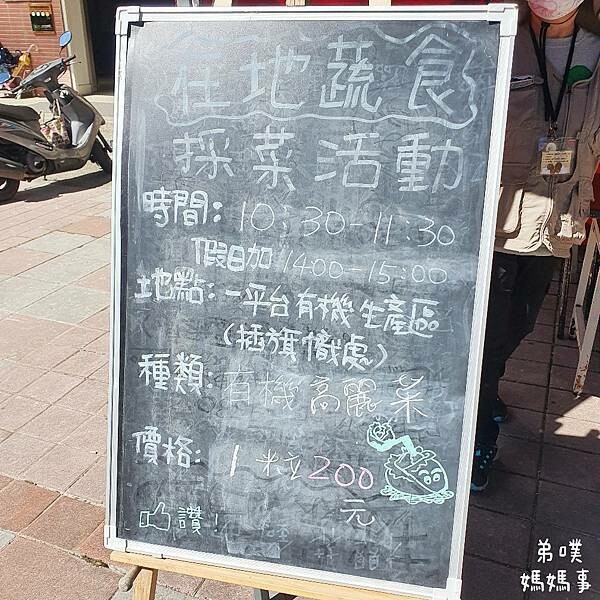 在地蔬食
採菜活動
時間：10：30-11：30
假日加 14：00-15：00
地點：一平台有機生產區
（插旗幟處）
種類：有機高麗菜
價格：1粒200
元
讚！
弟噗
媽媽事